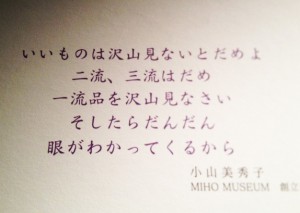 いいものは沢山見ないとだめよ
二流、三流はだめ
一流品を沢山見なさい
そしたらだんだん
眼がわかってくるから
小山美秀子
MIHO MUSEUM 創立